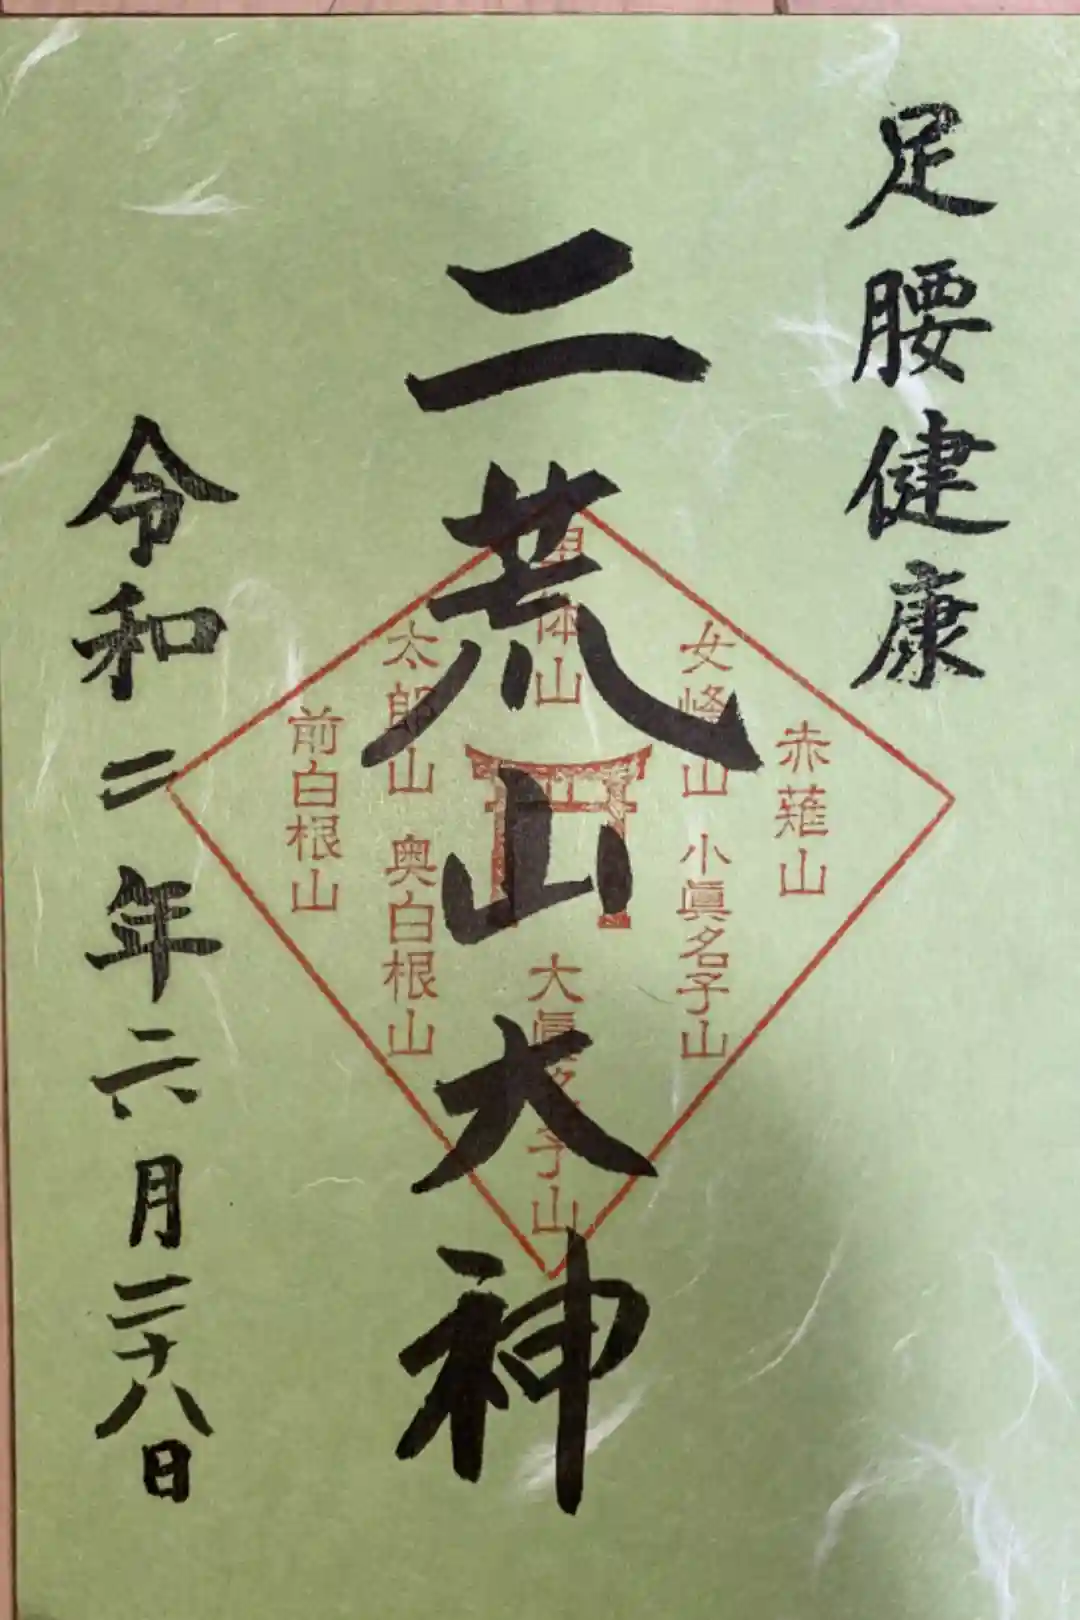 足腰健康
二荒山大神
赤薙山
女峰山
小眞名子山
男体山
大眞名子山
太郎山
奥白根山
前白根山
令和二年六月二十八日